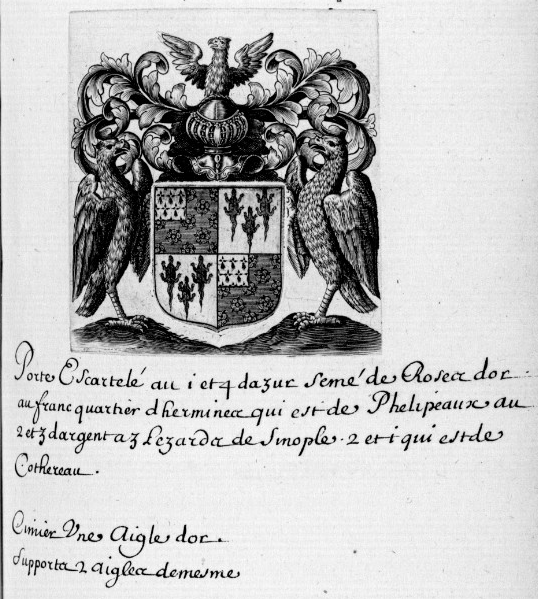 Porte Escartelé au 1 et 4 dazur semé de Roses dor
au franc quartier dhermines qui est de Phelipeaux au
2 et 3 dargent a 3 Lezards de Sinople . 2 et 1 qui est de
Cothereau .
Cimier Une Aigle dor .
Supports 2 aigles demesme